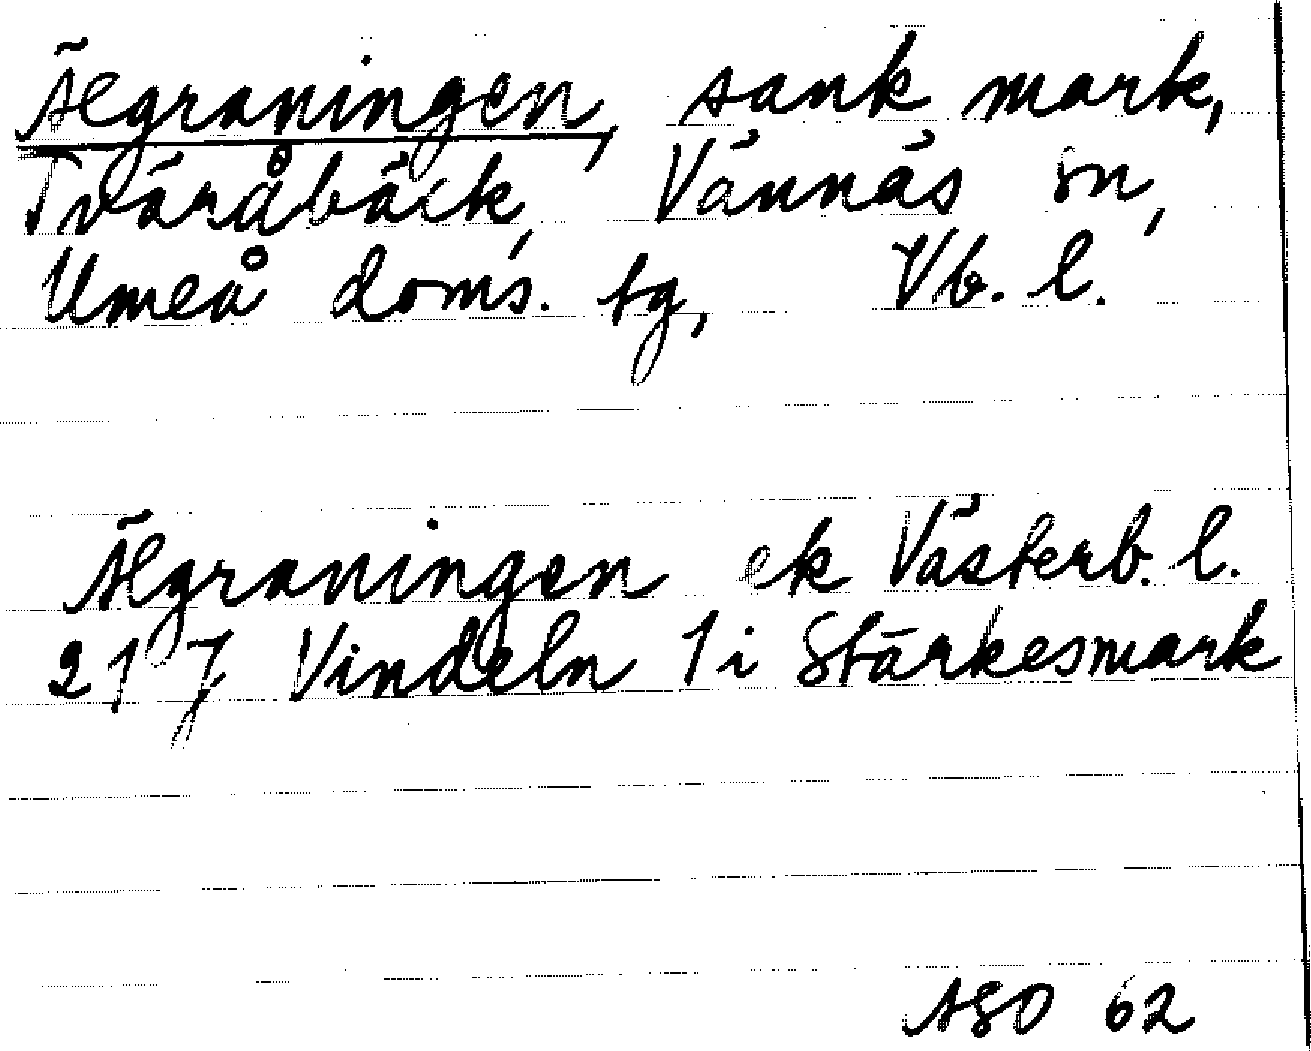 Älgraningen, sank mark,
Tväråbäck, Vännäs sn,
Umeå doms. tg, Vb. l.
Älgraningen ek Västerb. l.
21 J Vindeln 1i Stärkesmark
ASO 62